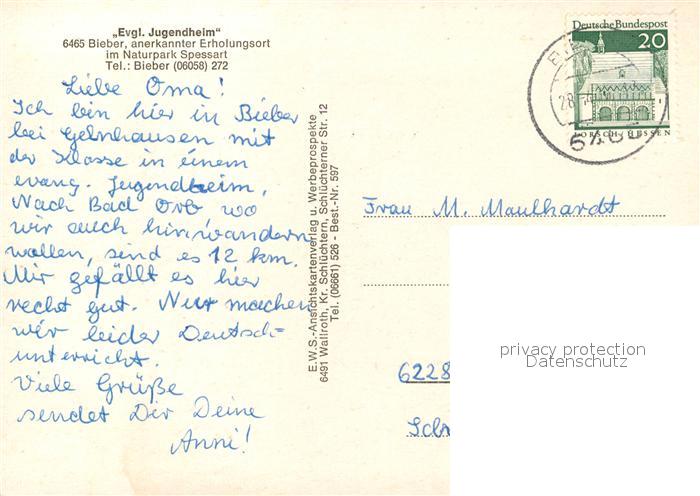 „Evgl. Jugendheim“
6465 Bieber, anerkannter Erholungsort
im Naturpark Spessart
Tel.: Bieber (06058) 272
Liebe Oma!
Ich bin hier in Bieber
bei Gelnhausen mit
der Klasse in einem
evang. Jugendheim.
Nach Bad Orb wo
wir auch hinwandern
wollen, sind es 12 km.
Mir gefällt es hier
recht gut. Nur machen
wir leider Deutsch=
unterricht.
Viele Grüße
sendet Dir Deine
Anni!
E.W.S.-Ansichtskartenverlag u. Werbeprospekte
6491 Wallroth, Kr. Schlüchtern, Schlüchterner Str. 12
Tel. (06661) 526 - Best.-Nr. 597
Deutsche Bundespost
20
LORSCH/HESSEN
28
Frau M. Maulhardt
6228
privacy protection
Datenschutz